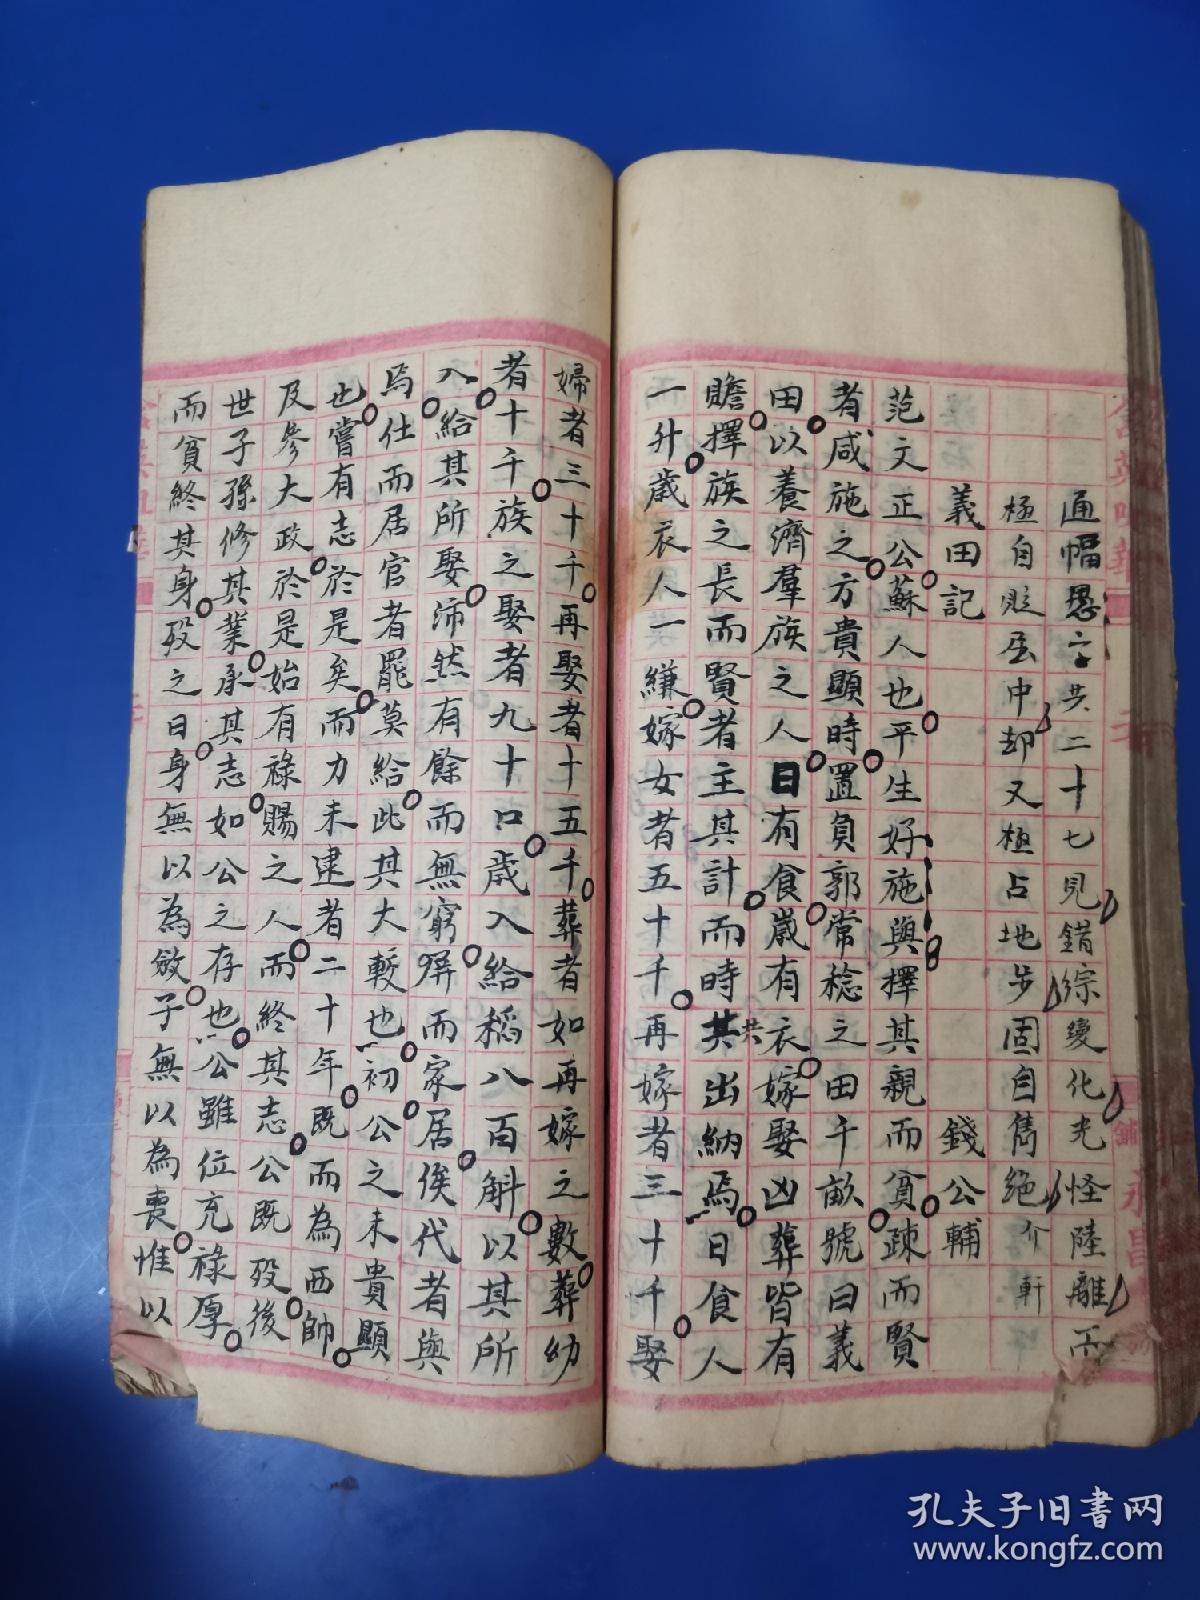 通幅愚字共二十七見錯綜變化光怪陸離而
極自貶屈中却又極占地步固自雋絕 介軒
義田記 錢公輔
范文正公蘇人也平生好施與擇其親而貧疎而賢
者咸施之方貴顯時置負郭常稔之田千畝號曰義
田以養濟羣族之人日有食歲有衣嫁娶凶葬皆有
贍擇族之長而賢者主其計而時共出納焉日食人
共
一升歲衣人一縑嫁女者五十千再嫁者三十千娶
婦者三十千再娶者十五千葬者如再嫁之數葬幼
者十千族之娶者九十口歲入給稻八百斛以其所
入給其所娶沛然有餘而無窮屏而家居俟代者與
焉仕而居官者罷莫給此其大較也初公之未貴顯
也嘗有志於是矣而力未逮者二十年既而為西帥
及參大政於是始有祿賜之人而終其志公既歿後
世子孫修其業承其志如公之存也公雖位充祿厚
而貧終其身歿之日身無以為斂子無以為喪惟以
孔夫子旧书网
www.kongfz.com